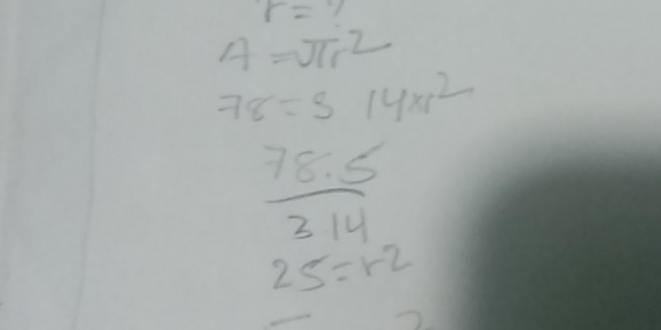 r = ?
A = πr²
78 = 3 14 × r²
78.5
3 14
25 = r2